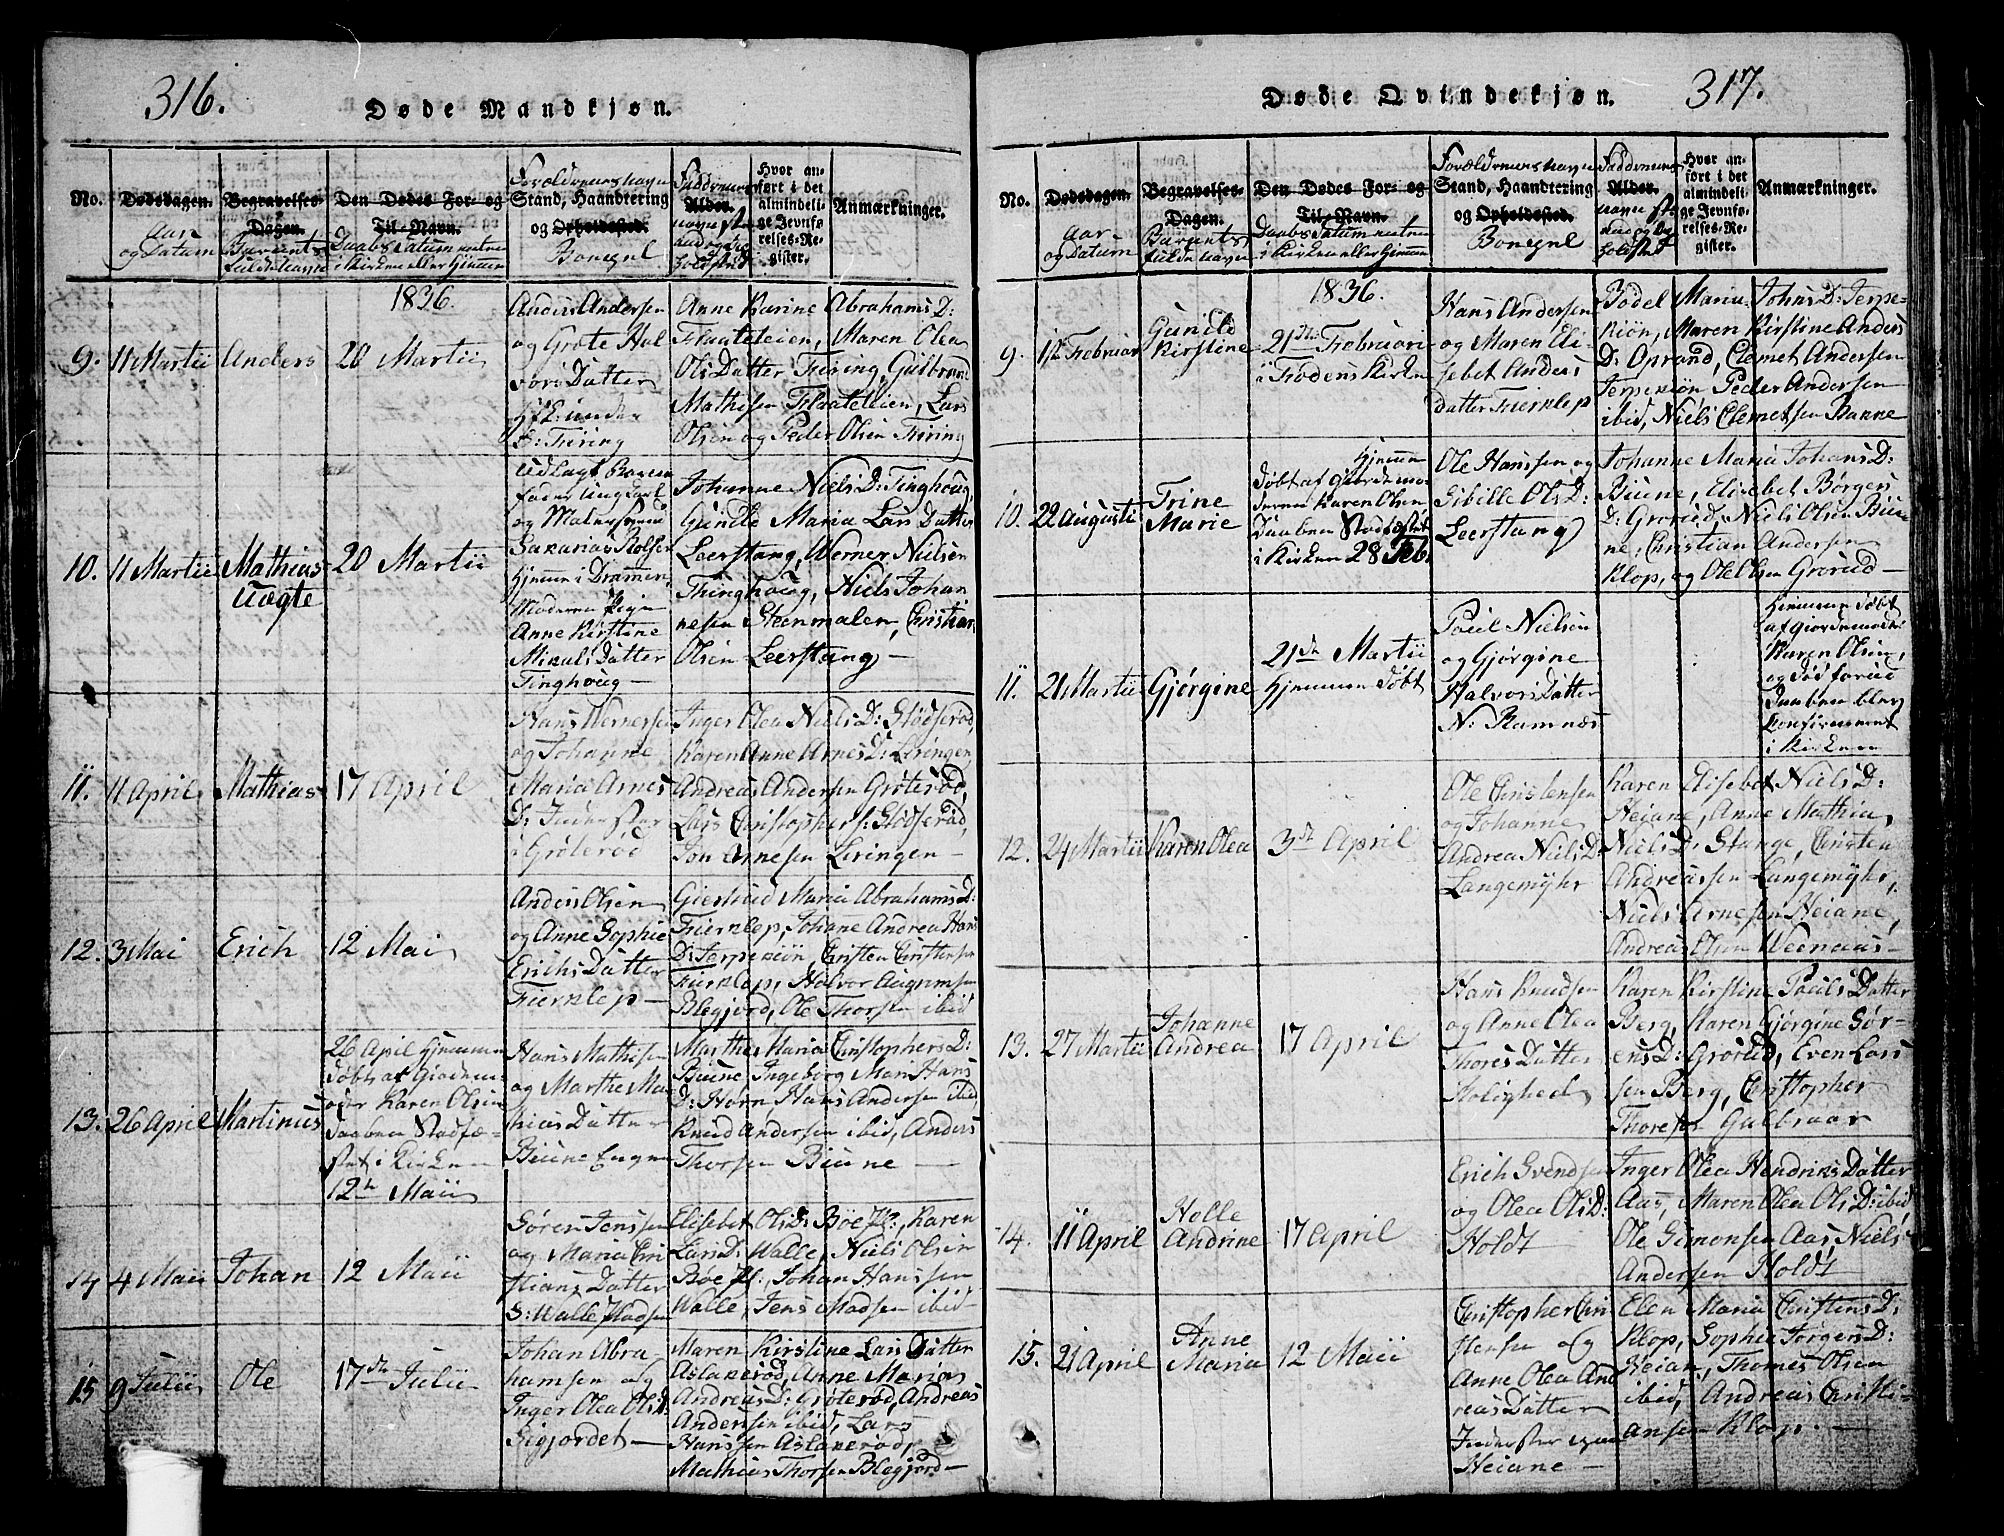 316.
Døde Mandkjøn.
No.
Dødsdagen.
Aar
og Datum
Begravelses-
Dagen.
Barnets
fulde Navn
Den Dødes For- og
Til-Navn.
Daabs Datum enten
i Kirken eller Hjemme
Forældrenes Navn
Stand, Haandtering
og Opholdssted.
Bonegnl
Faddernes
Alder.
Navne St-
and og Op
holdsted
Hvor an-
ført i det
almindeli-
ge Jevnfø-
relses-Re-
gister.
Anmærkninger.
1836.
9.
11 Martii
Anders
20 Martii
Anders Andersen
og Grote Hal
vors Datter
under
D: Fiøring
Anne Karine Abrahams D:
Flaateleien, Maren Olea
Ols Datter Fiøring, Gulbrand
Mathisen Flaateleien, Lars
Olsen og Peder Olsen Fiøring
10.
11 Martii
Mathias
Uægte
20 Martii
Udlagt Barne
fader ungkarl
og Malersvend
Sakarias
hjemme i Drammen
Moderen Pigen
Anne Kirstine
Mikals Datter
Tinghoug
Johanne Niels D: Tinghoug,
Gunild Maria Lars Datter
Leerstang, Werner Nielsen
Thinghoug, Niels Johan
nesen Steenmalen, Christian
Olsen Leerstang
11.
11 April
Mathias
17 April
Hans Wernersen
og Johanne
Maria Arnes
D: Inderster
Grøterød
Inger Olea Niels D: Slødserød,
Karen Anne Arnes D: Liringen,
Andreas Andersen Grøterød,
Lars Christophers: Slødserød,
Jon Arnesen Liringen
12.
3 Mai
Erich
12 Mai
Anders Olsen
og Anne Sophie
Erichs Datter
Fierklep
Giertrud Maria Abrahams D:
Fierklep, Johane Andrea Hans
D: Jerpekiön, Christen Christensen
Fierklep, Halvor Augrimsen
Blegjord, Ole Thorsen ibid
13.
26 April
Martinus
26 April Hjemme
døbt af Giordem-
oder Karen Olsen
Daaben Stadfæ-
stet i Kirken
12te Maii
Hans Mathisen
og Marthe Ma
thias Datter
Biune
Marthe Maria Christophers D:
Biune, Ingeborg Mari Hans
D: Horn, Hans Andersen ibid
Knud Andersen ibid, Anders
Thorsen Biune
14
4 Maii
Johan
12 Maii
Søren Jenssen
og Maria Chri
stians Datter
S: Walle Pladsen
Elisebet Ols D: Bøe Pl:, Karen
Lars D: Walle, Niels Olsen
Bøe Pl: Johan Hanssen
Walle, Jens Madsen ibid
15
9 Julii
Ole
17de Julii
Johan Abra
hamsen og
Inger Olea Ols D:
Gigjordet
Maren Kirstine Lars Datter
Aslakerød, Anne Maria
Andreas D: Grøterød, Andreas
Andersen ibid, Lars
Hanssen Aslakerød,
Mathias Thorsen Blegjord
317.
Døde Qvindekjøn.
No.
Dødsdagen.
Aar
og Datum
Begravelses-
Dagen.
Barnets
fulde Navn
Den Dødes For- og
Til-Navn.
Daabs Datum enten
i Kirken eller Hjemme
Forældrenes Navn
Stand, Haandtering
og Opholdssted.
Bonegnl
Faddernes
Alder.
Navne St-
and og Op
holdsted
Hvor an-
ført i det
almindeli-
ge Jevnfø-
relses-Re-
gister.
Anmærkninger.
1836.
9.
Februar
Gunild
Kirstine
21de Februari
i Fodens Kirke
Hans Andersen
og Maren Eli
sebet Anders
datter Fierklep
Bodel Maria Johns D: Jerpe-
kiön, Maren Kirstine Anders
D: Oprand, Clemet Andersen
Jerpekiön Peder Andersen
ibid, Niels Clemetsen Banne
10.
22 Augusti
Trine
Marie
Hjemme
døbt af Giordemo-
deren Karen Olsen
Daaben Stadfæstet
i Kirken 28 Feb.
Ole Hanssen og
Sibille Ols D:
Leerstang
Johanne Maria Johans D:
Biune, Elisebet Børges
D: Grorud, Niels Olsen Biu-
ne, Christian Andersen
Klop, og Ole Olsen Grorud
11.
21 Martii
Gjørgine
21de Martii
Hjemme Døbt
Poul Nielsen
og Gjørgine
Halvors Datter
N: Ramnæs
Hjemme døbt
af Giordemoder
Maren Olsen,
og død forud
Daaben blev
Konfirmeret
i Kirken
12.
24 Martii
Karen Olea
3de April
Ole Christensen
og Johanne
Andrea Niels D:
Langemyhr
Karen Elisebet Niels D:
Heiane, Anne Mathia
Niels D: Stange, Christen
Andreassen Langemyhr,
Niels Arnesen Heiane,
Andreas Olsen Weenaas
13.
27 Martii
Johanne
Andrea
17 April
Hans Knudsen
og Anne Olea
Thores Datter
Rolighed
Karen Kirstine Pouls Datter
Berg, Karen Gjørgine Sør-
ens D: Grorud, Even Lars
sen Berg, Christopher
Thoresen Gulbraar
14.
11 April
Holle
Andrine
17 April
Erich Svendsen
og Olea Ols D:
Holdt
Inger Olea Hendriks Datter
Aas, Maren Olea Ols D: ibid
Ole Simonsen Aas Niels
Andersen Holdt
15.
21 April
Anne
Maria
12 Maii
Christopher Chri
stensen og
Anne Olea And
reas Datter
Inderster
Heiane
Elen Maria Christens D:
Klop, Sophie Jørgens D:
Heian, Thomes Olsen
ibid, Andreas Christi-
ansen Klop.